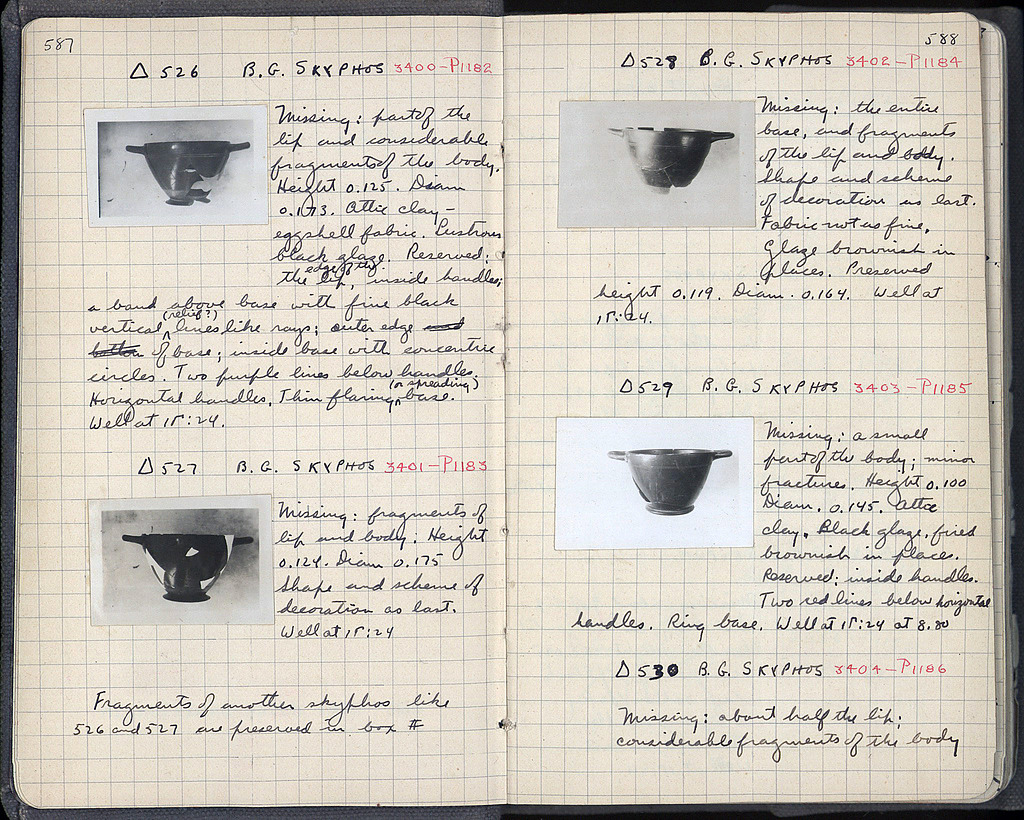 587
Δ 526 B.G. SKYPHOS 3400-P1182
Missing: part of the
lip and considerable
fragments of the body.
Height 0.125. Diam
0.173. Attic clay-
eggshell fabric. Lustrous
black glaze. Reserved:
edge of the
the lip, inside handles;
a band above base with fine black
(relief?)
vertical lines like rays; outer edge and
bottom of base; inside base with concentric
circles. Two purple lines below handles.
(or spreading)
Horizontal handles. Thin flaring base.
Well at ΙΓ:24.
Δ 527 B.G. SKYPHOS 3401-P1183
Missing: fragments of
lip and body. Height
0.124. Diam 0.175
Shape and scheme of
decoration as last.
Well at ΙΓ:24
Fragments of another skyphos like
526 and 527 are preserved in box #
588
Δ 528 B.G. SKYPHOS 3402-P1184
Missing: the entire
base, and fragments
of the lip and body.
Shape and scheme
of decoration as last.
Fabric not as fine.
Glaze brownish in
places. Preserved
height 0.119. Diam. 0.164. Well at
ΙΓ:24.
Δ 529 B.G. SKYPHOS 3403-P1185
Missing: a small
part of the body; minor
fractures. Height 0.100
Diam. 0.145. Attic
clay. Black glaze, fired
brownish in places.
Reserved: inside handles.
Two red lines below horizontal
handles. Ring base. Well at ΙΓ:24 at 8.80
Δ 530 B.G. SKYPHOS 3404-P1186
Missing: about half the lip;
considerable fragments of the body